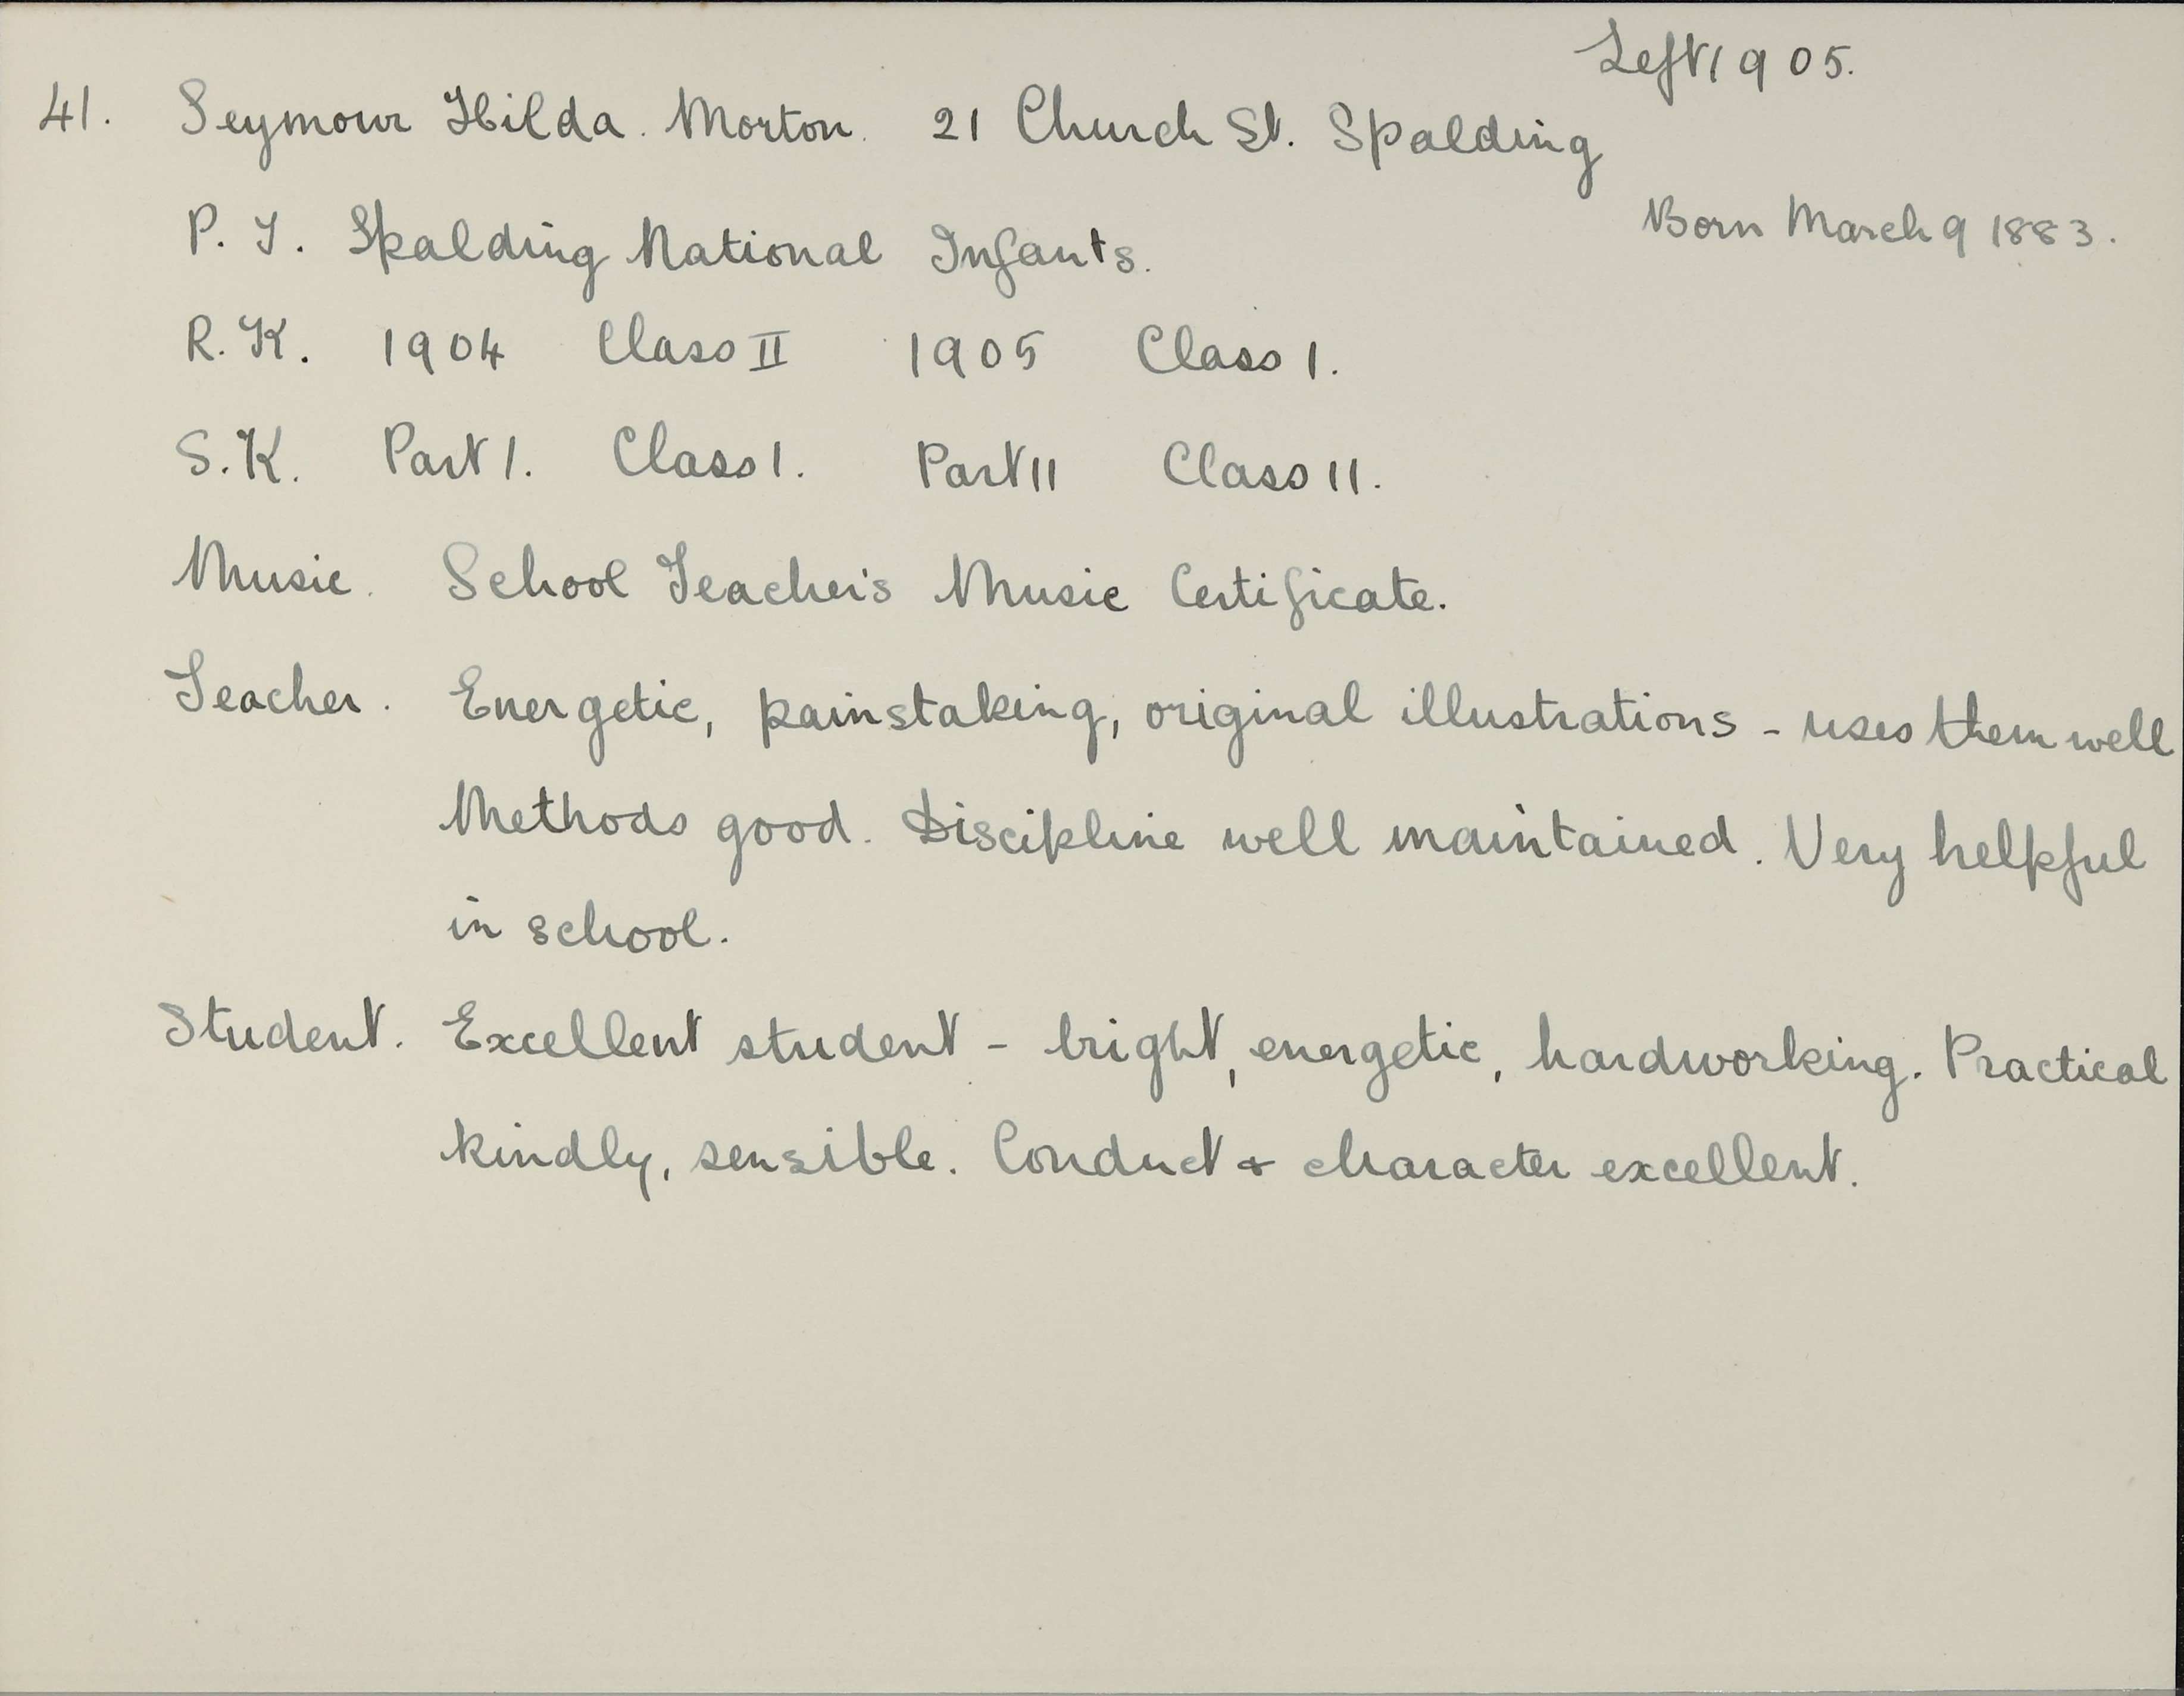 Left 1905.
41. Seymour Hilda. Morton. 21 Church St. Spalding
Born March 9 1883.
P. T. Spalding National Infants.
R. K. 1904 Class II 1905 Class I.
S. K. Part I. Class I. Part II Class II.
Music. School Teacher's Music Certificate.
Teacher. Energetic, painstaking, original illustrations - uses them well
Methods good. Discipline well maintained. Very helpful
in school.
Student. Excellent student - bright, energetic, hardworking. Practical
kindly, sensible. Conduct & character excellent.